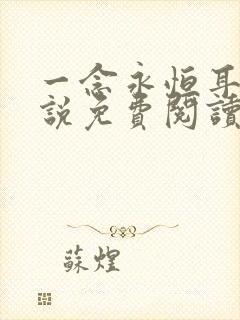 一念永恒耳
説免費閱讀
蘇煌